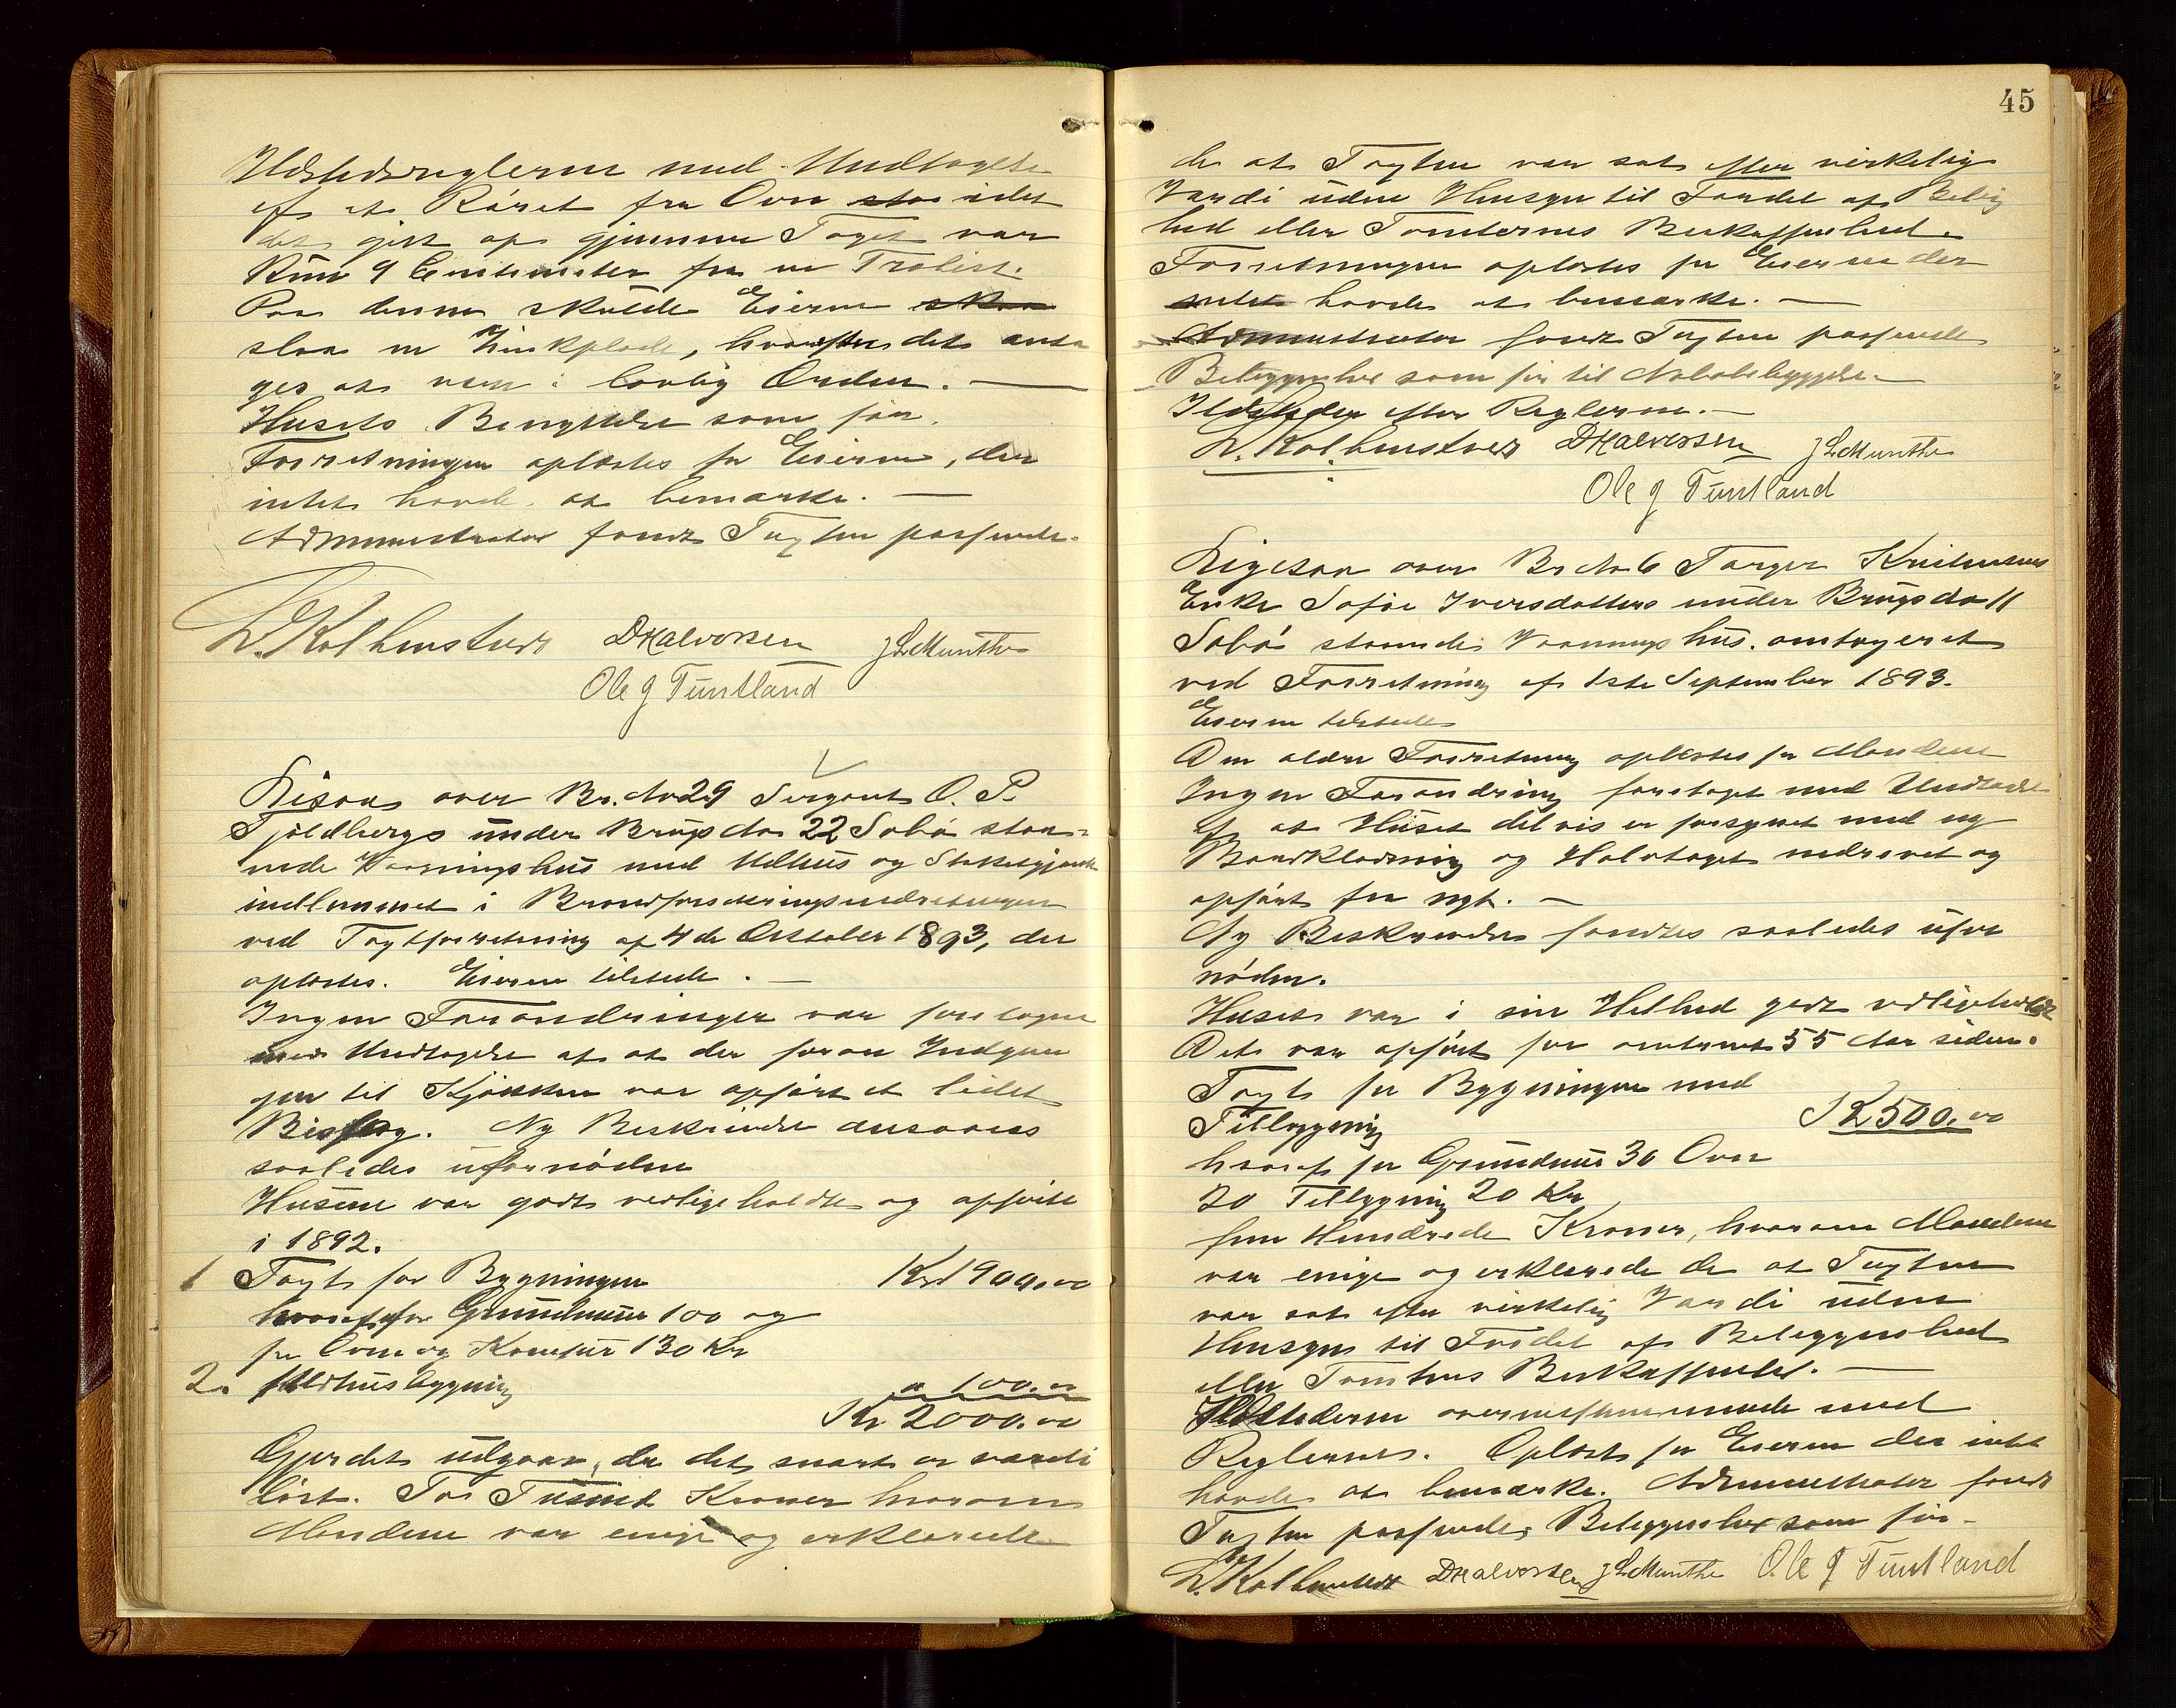 Ildstedsreglerne med Undtagelse
af at Röret fra Ovn staa idet
det gik op gjennem Taget var
Kun 9 Centimeter fra en Trælist.
Paa denne skulde Eieren skaa
slaa en Zinkplade, hvorefter det anta
ges at være i lovlig Orden. —
Husets Benyttelse som før.
Forretningen oplæstes for Eieren, der
intet havde at bemærke. —
Administrator fandt Taxten passende.
L. Kolbenstvedt DHalvorsen J L Munthe
Ole J Tuntland
Ligesaa over Br. No 29 Sergeant O. P.
Sjöldbergs under Brugs No 22 Sæbø staa-
ende Vaaningshus med Udhus og Staketgjærde
indlemmet i Brandforsikringsindretningen
ved Taxtforretning af 4de October 1893, der
oplæstes. Eieren tilstede. —
Ingen Forandringer var foretagne
med Undtagelse af at der foran Indgan
gen til Kjøkken var opført et lidet
Bislag. Ny Beskrivelse ansaaes
saaledes ufornøden
Husene var godt vedligeholdt og opførte
i 1892.
1 Taxt for Bygningen Kr 1900.00
hvoraf for Grundmur 100 og
for Ovne og Komfur 130 Kr
2. Udhusbygning " 100.00
Kr 2000.00
Gjerdet udgaar, da det snart er værdi
løst. To Tusind Kroner hvorom
Mændene var enige og erklærede
45
de at Taxten var sat efter virkelig
Værdi uden Hensyn til Fordel af Belig
hed eller Tomternes Beskaffenhed.
Forretningen oplæstes for Eieren der
intet havde at bemærke. —
Administrator fandt Taxten passende
Beliggenhed som før til Nabobebyggelse
Ildsteder efter Reglerne. —
L. Kolbenstvedt DHalvorsen J L Munthe
Ole J Tuntland
Ligesaa over Br No 6 Torger Knudsens
Enke Sofie Iversdatters under Brugs No 11
Sæbø staaende Vaaningshus. omtaxeret
ved Forretning af 1ste September 1893.
Eieren tilstede
Den ældre Forretning oplæstes for Mændene
Ingen Forandring foretaget med Undtagelse
af at Huset delvis er forsynet med ny
Bordklædning og Halvtaget nedrevet og
opført fra nyt. —
Ny Beskrivelse fandtes saaledes ufor
nøden.
Huset var i sin Helhed godt vedligeholdt
Det var opført for omtrent 55 Aar siden.
Taxt for Bygningen med
Tilbygning Kr 500.00
hvoraf for Grundmur 30 Ovn
70 Tilbygning 20 Kr
fem Hundrede Kroner, hvorom Mændene
var enige og erklærede de at Taxten
var sat efter virkelig Værdi uden
Hensyn til Fordel af Beliggenhed
eller Tomtens Beskaffenhed. —
Ildstederne overensstemmende med
Reglerne. Oplæst for Eieren der intet
havde at bemærke. Administrator fandt
Taxten passende, Beliggenhed som før —
L. Kolbenstvedt DHalvorsen J L Munthe Ole J Tuntland